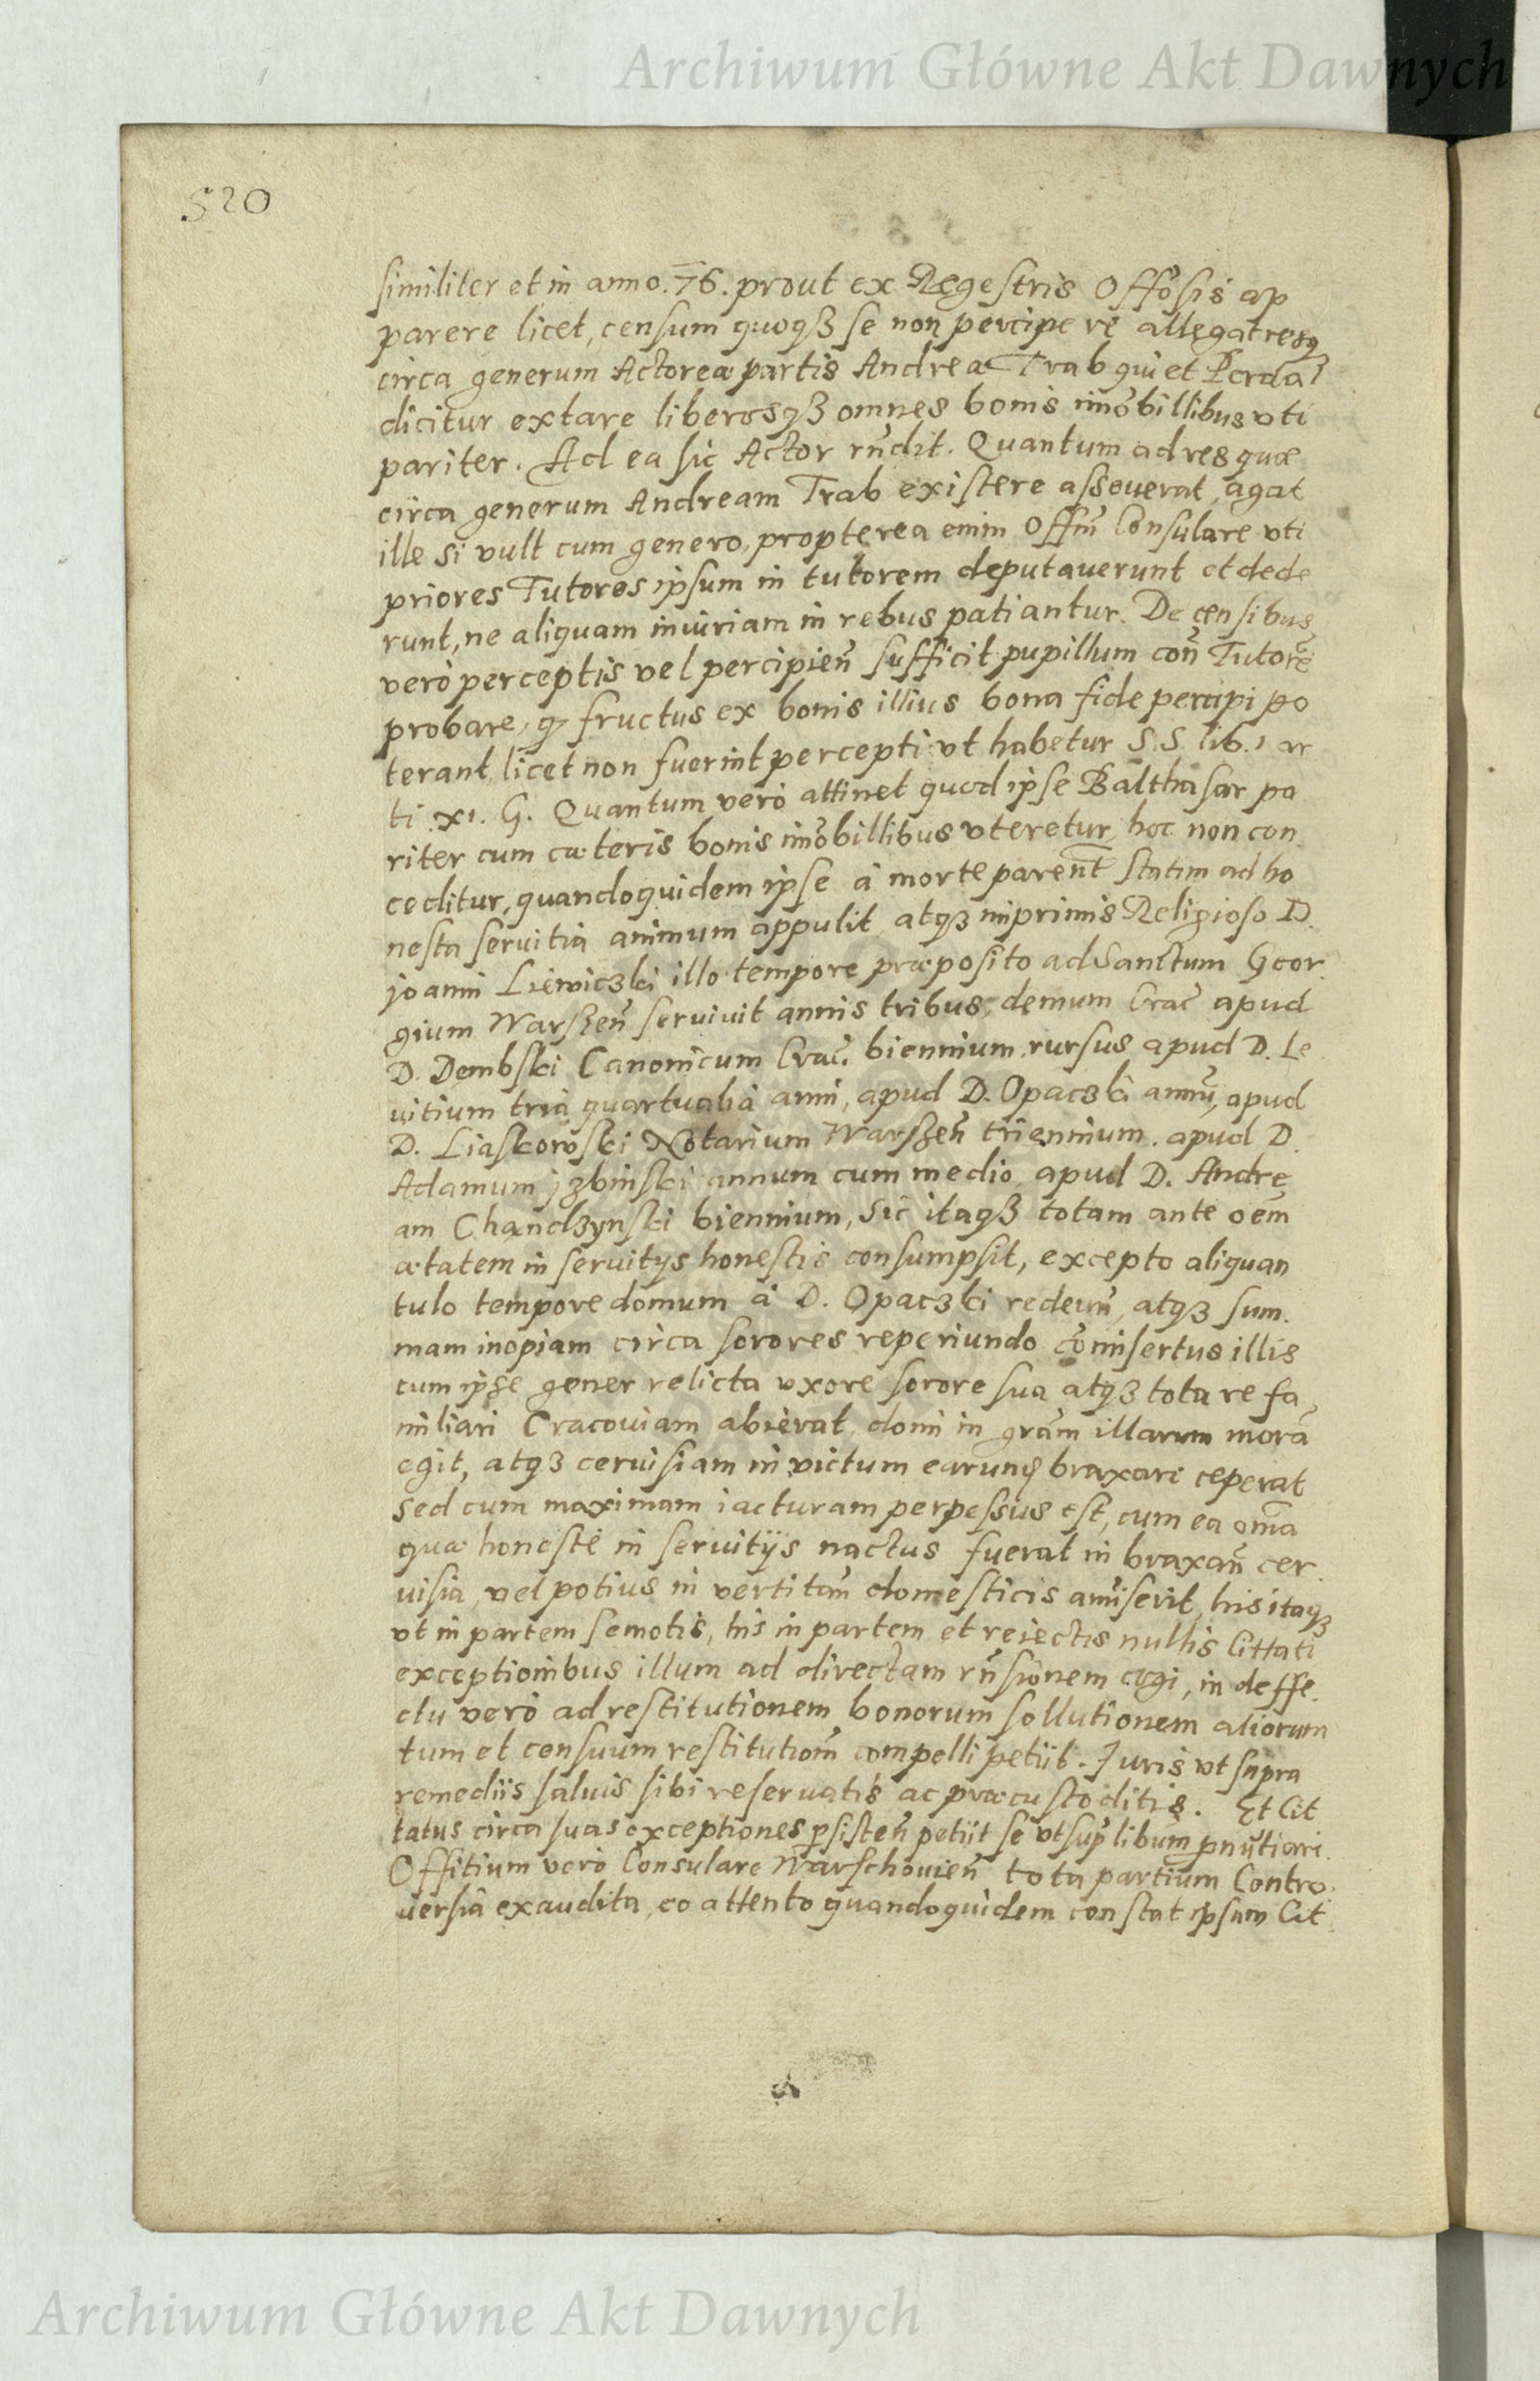 Archiwum Główne Akt Dawnych
520
similiter et in anno. 76. prout ex Regestris Offosis ap
parere licet, censum quoqȝ se non percipere allegat resqȝ
circa generum Actoreæ partis Andrea Trab qui et Perda
dicitur extare liberosqȝ omnes bonis imobillibus vti
pariter. Ad ea sic Actor rñdit. Quantum ad res quæ
circa generum Andream Trab existere asseuerat, agat
ille si vult cum genero, propterea enim Offm̃ Consulare vti
priores Tutores ipsum in tutorem deputauerunt et dede
runt, ne aliquam iniuriam in rebus patiantur. De censibus
verò perceptis vel percipieñ sufficit pupillum coñ Tutorē
probare, q fructus ex bonis illius bona fide percipi po
terant, licet non fuerint percepti vt habetur S.S. lib. 1 ar
ti. xi. G. Quantum verò attinet quod ipse Balthasar pa
riter cum cæteris bonis imobillibus vteretur, hoc non con
ceditur, quandoquidem ipse à morte pareñt statim ad ho
nesta seruitia animum appulit, atqȝ inprimis Religioso D.
joanni Liewiczki illo tempore præposito ad Sanctum Geor
gium Warszeñ seruiuit annis tribus, demum Crac̃ apud
D. Dembski Canonicum Crac̃. biennium, rursus apud D. Le
vitium tria quartualia anni, apud D. Opaczki annũ, apud
D. Liaskowski Notarium Warszeñ triennium. apud D.
Adamum jzbinski annum cum medio, apud D. Andre
am Chandzynski biennium, Sic itaqȝ totam ante oem̃
ætatem in seruitys honestis consumpsit, excepto aliquan
tulo tempore domum à D. Opaczki redeuñ, atqȝ sum
mam inopiam circa sorores reperiundo comisertus illis
cum ipse gener relicta vxore sorore sua atqȝ tota re fa
miliari Cracouiam abierat, domi in gram̃ illarum morã
egit, atqȝ ceruisiam in victum earunđ braxari ceperat
Sed cum maximam iacturam perpessus est, cum ea om̃a
quæ honestè in seruitijs nactus fuerat in braxañ cer
uisia, vel potius in vertitañ domesticis amiserit, his itaqȝ
vt in partem semotis, his in partem et reiectis nullis Cittati
exceptionibus illum ad directam rñsionem cogi, in deffe
ctu verò ad restitutionem bonorum sollutionem aliorum
tum et censuum restitutiom̃ compelli petijt. Juris vt supra
remedijs saluis sibi reseruatis ac præcustoditis. Et Cit
tatus circa suas exceptiones psisteñ petijt se vt sup̃ libum pnũtiari.
Offitium verò Consulare Warschouieñ tota partium Contro
uersia exaudita, eo attento quandoquidem constat ipsum Cit
Archiwum Główne Akt Dawnych